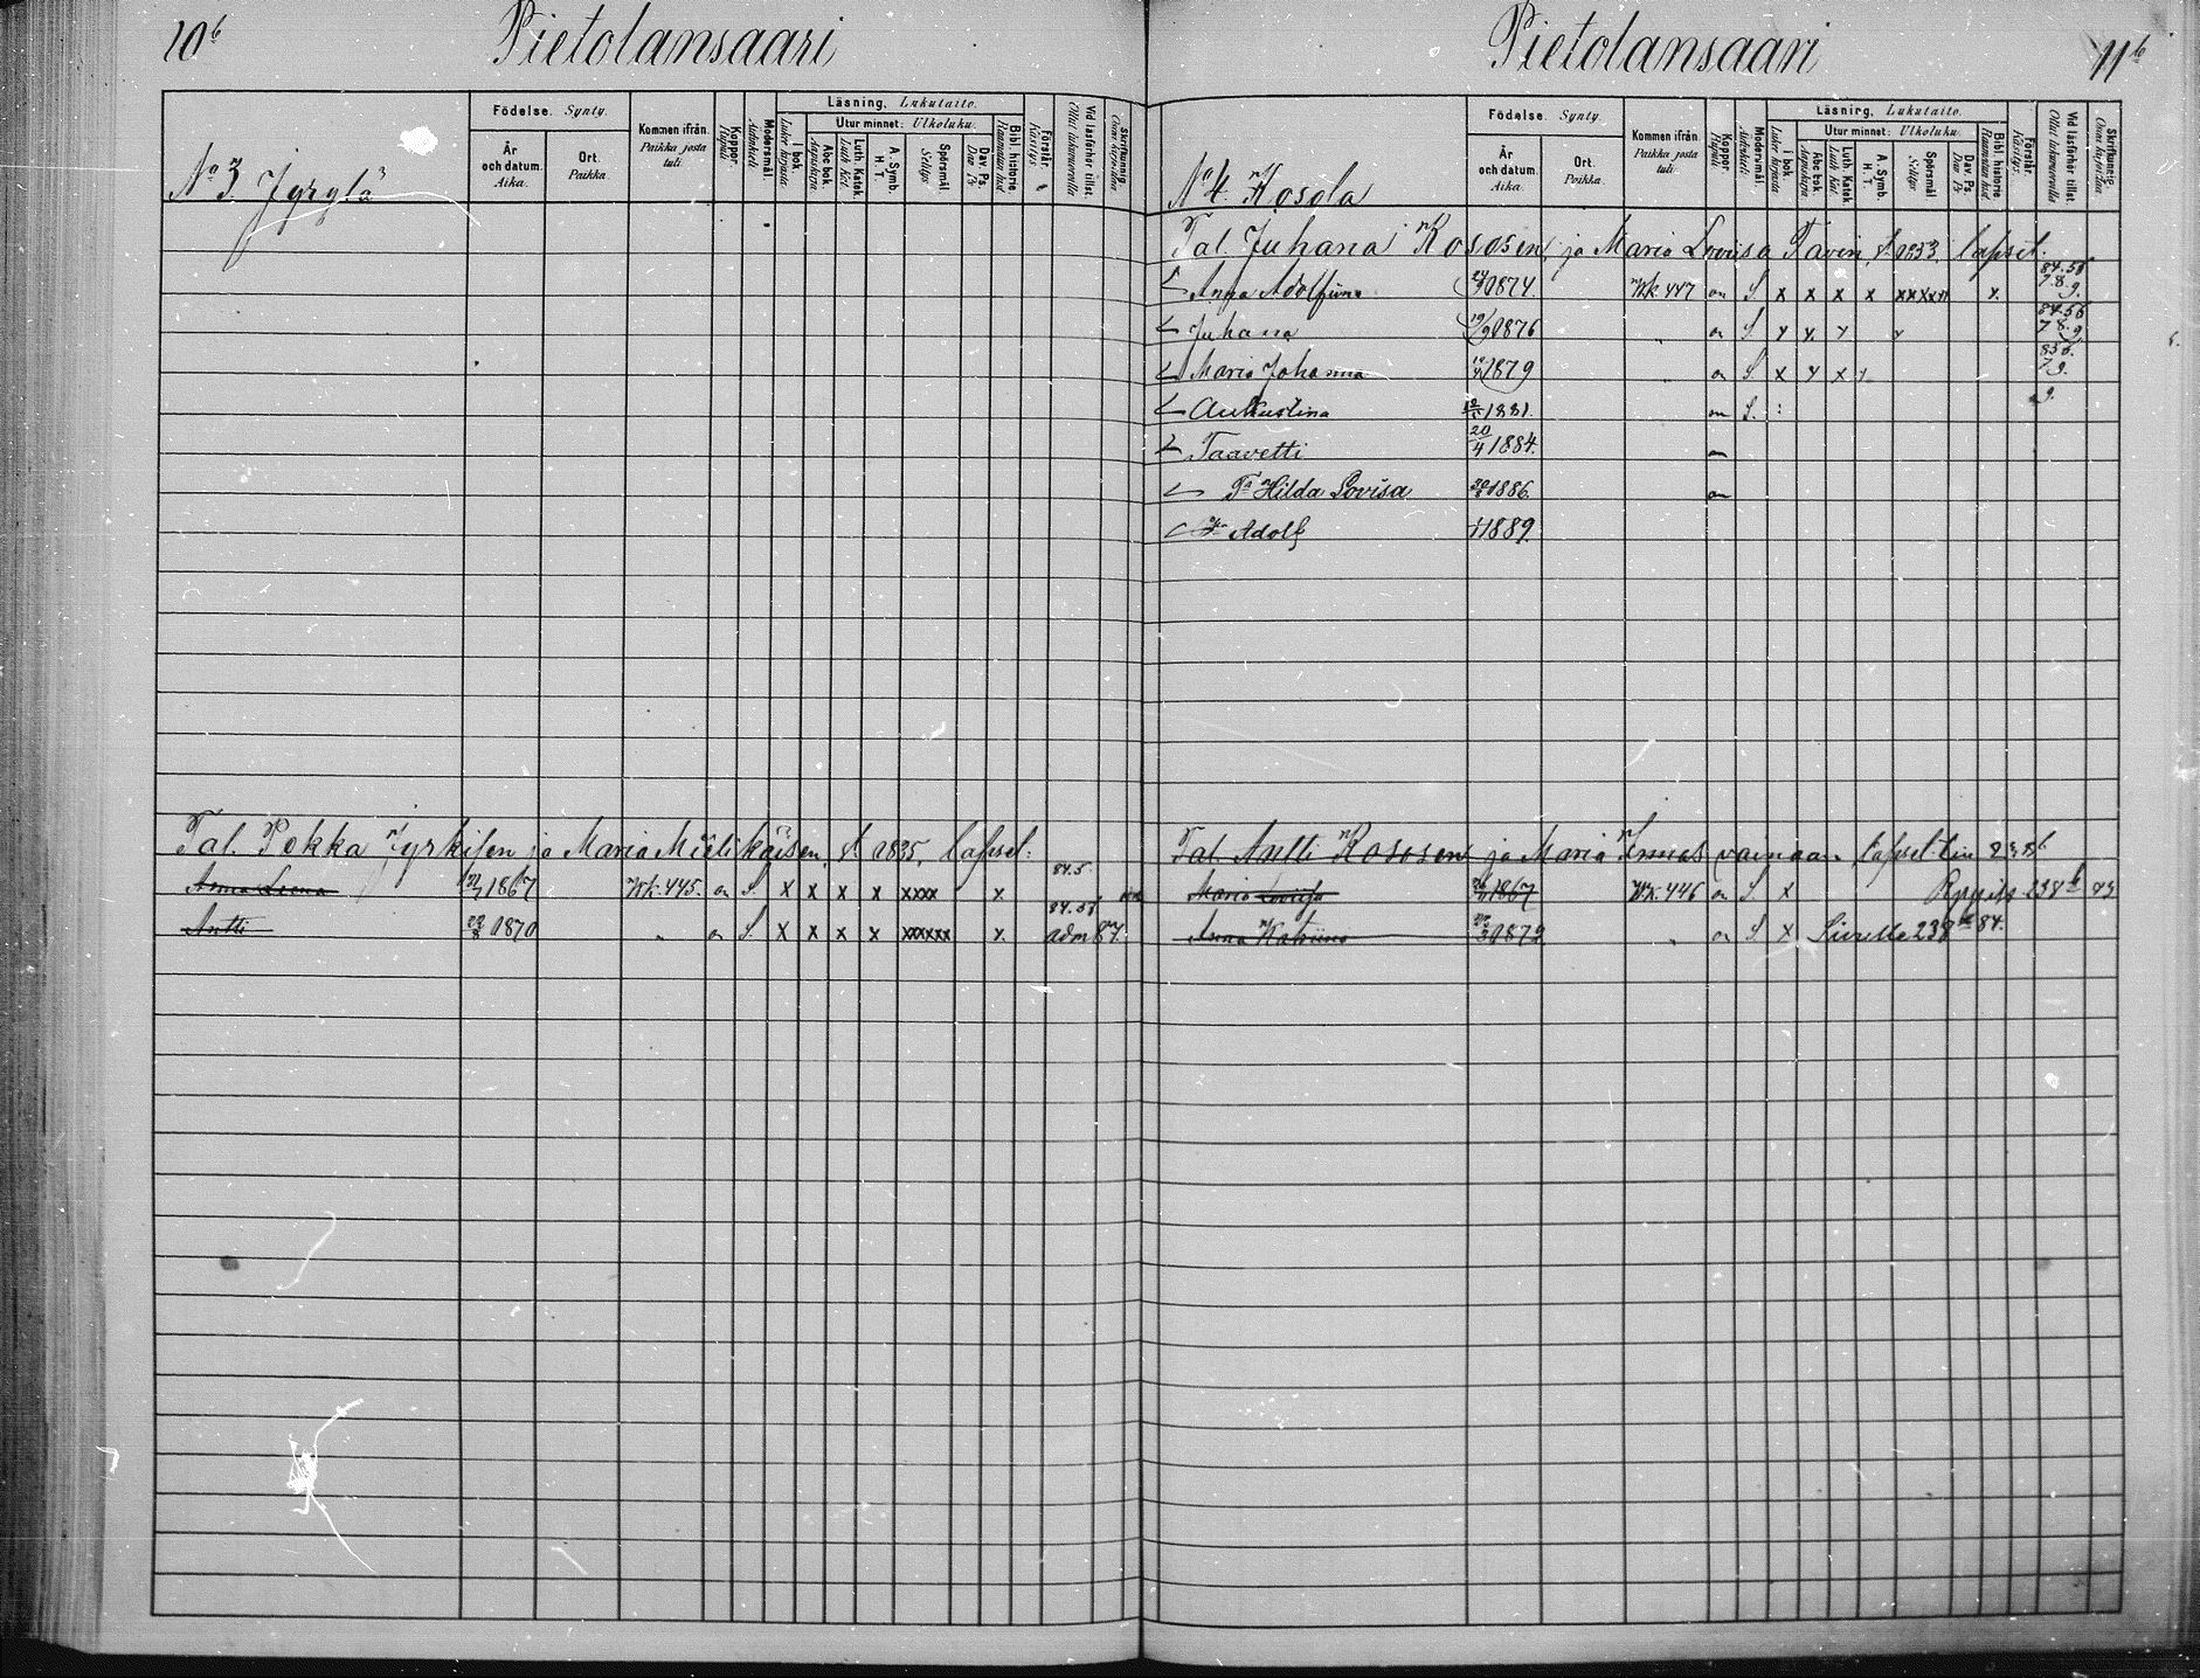 10b Pietolansaari
No 3 Jyrylä
Födelse. Synty.
År och datum. Aika.
Ort. Paikka.
Kommen ifrån. Paikka josta tuli.
Koppor. Rupuli
Modersmål. Äidinkieli
Läsning, Lukutaito.
I bok. Lukee kirjasta
Utur minnet: Ulkoluku.
Abc bok. Aapiskirja
Luth. Katek. Luth Kat.
A. Symb. H. T.
Spörsmål Selitys
Dav. Ps. Dav Ps
Bibl. historie. Raamatun hist
Förstår. Käsitys
Vid läsförhör tillst. Ollut lukuvuorolla
Skrifkunnig. Osaa kirjoittaa
Tal. Pekka Jyrkisen ja Maria Mielikäisen, s. 1835, lapset:
Anna Leena 1867 Rk. 445. on S. X X X X XXXX X. 84.5
Antti 1870 " on S. X X X X XXXXXX X. 84.56 adm 87.
Pietolansaari 11b
No 4. Kosola
Födelse. Synty.
År och datum. Aika.
Ort. Paikka.
Kommen ifrån. Paikka josta tuli.
Koppor. Rupuli
Modersmål. Äidinkieli
Läsnirg, Lukutaito.
I bok Lukee kirjasta
Utur minnet: Ulkoluku.
Abc bok. Aapiskirja
Luth. Katek Luth Kat.
A. Symb. H. T
Spörsmål Selitys
Dav. Ps. Dav Ps
Bibl historie Raamatun hist
Förstår. Käsitys.
Vid läsförhör tillst Ollut lukuvuorolla
Skrifkunnig Osaa kirjoittaa
Tal. Juhana Kososen, ja Maria Lovisa Tavin, s. 1853, lapset.
Anna Adolfiina 1874. Rk. 447 on S X X X X X. 84.56 7.8.9.
Juhana 19/9 1876 " on S. 84.56 7.8.9.
Maria Johanna 1879 " on S. X X X 856. 79.
Aukustina 1881. on S. 9.
Taavetti 20/4 1884. on
Hilda Lovisa 1886. on
Adolf 1889.
Tal. Antti Kososen ja Maria vainaan lapset
Maria Loviisa 1867 Rk. 446 on S. X 238b 83
Anna Katriina " on S X 84.